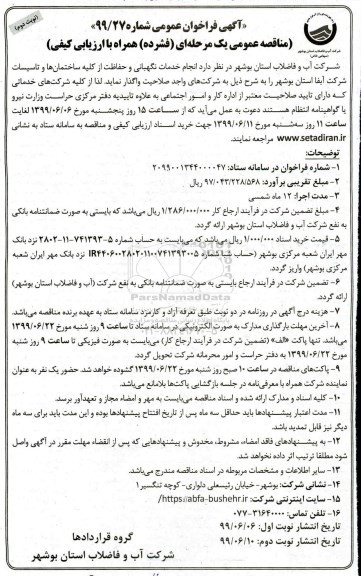 (نوبت دوم)
«آگهی فراخوان عمومی شماره ۹۹/۲۷»
(مناقصه عمومی یک مرحله‌ای (فشرده) همراه با ارزیابی کیفی)
شرکت آب و فاضلاب استان بوشهر در نظر دارد انجام خدمات نگهبانی و حفاظت از کلیه ساختمان‌ها و تاسیسات
شرکت آبفا استان بوشهر را به شرح ذیل به شرکت‌های واجد صلاحیت واگذار نماید. لذا از کلیه شرکت‌های خدماتی
که دارای تایید صلاحیت معتبر از اداره کار و امور اجتماعی به علاوه تاییدیه دفتر مرکزی حراست وزارت نیرو
یا گواهینامه انتظام هستند دعوت به عمل می‌آید که از ساعت ۱۵ روز پنجشنبه مورخ ۱۳۹۹/۰۶/۰۶ لغایت
ساعت ۱۱ روز سه‌شنبه مورخ ۱۳۹۹/۰۶/۱۱ جهت خرید اسناد ارزیابی کیفی و مناقصه به سامانه ستاد به نشانی
www.setadiran.ir مراجعه نمایند.
توضیحات:
۱- شماره فراخوان در سامانه ستاد: ۲۰۹۹۰۰۱۳۴۴۰۰۰۰۴۷
۲- مبلغ تقریبی برآورد: ۹۷/۰۴۳/۲۲۸/۵۶۸ ریال
۳- مدت اجرا: ۱۲ ماه شمسی
۴- مبلغ تضمین شرکت در فرآیند ارجاع کار ۱/۲۸۶/۰۰۰/۰۰۰ ریال می‌باشد که بایستی به صورت ضمانتنامه بانکی
به نفع شرکت آب و فاضلاب استان بوشهر ارائه گردد.
۵- قیمت خرید اسناد ۱/۰۰۰/۰۰۰ ریال می‌باشد که می‌بایست به حساب شماره ۵-۷۴۱۳۹۳-۱۱-۲۸۰۲ نزد بانک
مهر ایران شعبه مرکزی بوشهر (حساب شبا شماره IR۴۴۰۶۰۰۲۸۰۲۰۱۱۰۰۷۴۱۳۹۳۰۰۵ نزد بانک مهر ایران شعبه
مرکزی بوشهر) واریز گردد.
۶- تضمین شرکت در فرآیند ارجاع بایستی به صورت ضمانتنامه بانکی به نفع شرکت (آب و فاضلاب استان بوشهر)
ارائه گردد.
۷- هزینه درج آگهی در روزنامه در دو نوبت طبق تعرفه آزاد و کارمزد سامانه ستاد به عهده برنده مناقصه می‌باشد.
۸- آخرین مهلت بارگذاری مدارک به صورت الکترونیکی در سامانه ستاد تا ساعت ۹ روز شنبه مورخ ۱۳۹۹/۰۶/۲۲
می‌باشد. تنها پاکت «الف» (تضمین شرکت در فرآیند ارجاع کار) می‌بایست به صورت فیزیکی تا ساعت ۹ روز شنبه
مورخ ۱۳۹۹/۰۶/۲۲ به دفتر حراست و امور محرمانه شرکت تحویل گردد.
۹- پاکت‌های مناقصه در ساعت ۱۰ صبح روز شنبه مورخ ۱۳۹۹/۰۶/۲۲ گشوده خواهد شد. حضور یک نفر به عنوان
نماینده شرکت همراه با معرفی‌نامه در جلسه بازگشایی پاکت‌ها بلامانع می‌باشد.
۱۰- کلیه اسناد و مدارک ارائه شده و اسناد مناقصه می‌بایست به مهر و امضاء مجاز و تعهدآور برسد.
۱۱- مدت اعتبار پیشنهادها باید حداقل سه ماه پس از تاریخ افتتاح پیشنهادها بوده و این مدت باید برای سه ماه
دیگر نیز قابل تمدید باشد.
۱۲- به پیشنهادهای فاقد امضاء، مشروط، مخدوش و پیشنهادهایی که پس از انقضاء مهلت مقرر در آگهی واصل
شود مطلقا ترتیب اثر داده نخواهد شد.
۱۳- سایر اطلاعات و مشخصات مربوطه در اسناد مناقصه مندرج می‌باشد.
۱۴- نشانی شرکت: بوشهر- خیابان رئیسعلی دلواری- کوچه تنگسیر۱
۱۵- سایت اینترنتی شرکت: https://abfa-bushehr.ir/
۱۶- تلفن تماس: ۳۱۶۴۰۰۰۰-۰۷۷
تاریخ انتشار نوبت اول: ۹۹/۰۶/۰۶
تاریخ انتشار نوبت دوم: ۹۹/۰۶/۱۰
گروه قراردادها
شرکت آب و فاضلاب استان بوشهر